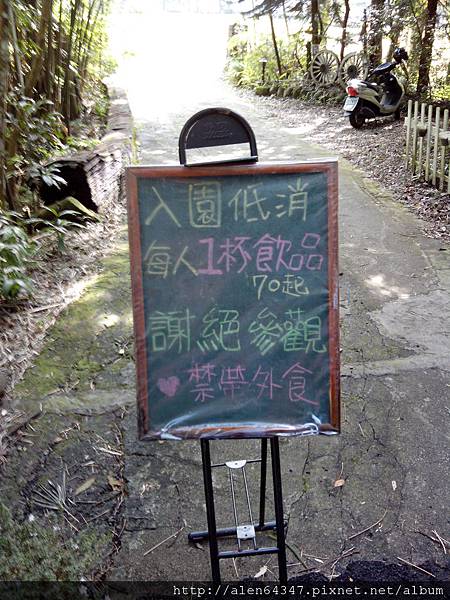 入園低消
每人1杯飲品
70起
謝絕參觀
禁帶外食
http://alen64347.pixnet.net/album